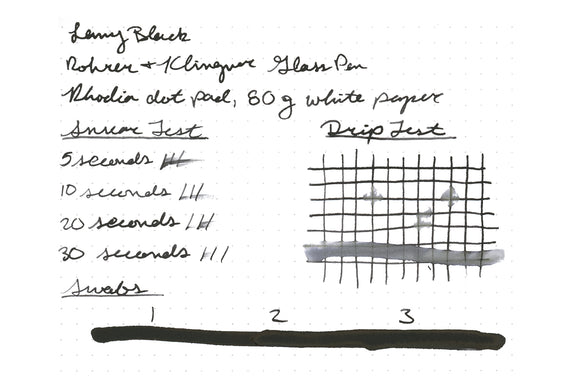 Lamy Black
Rohrer + Klingner Glass Pen
Rhodia dot pad, 80 g white paper
Smear Test
Drip Test
5 seconds ///
10 seconds ///
20 seconds ///
30 seconds ///
Swabs
1 2 3